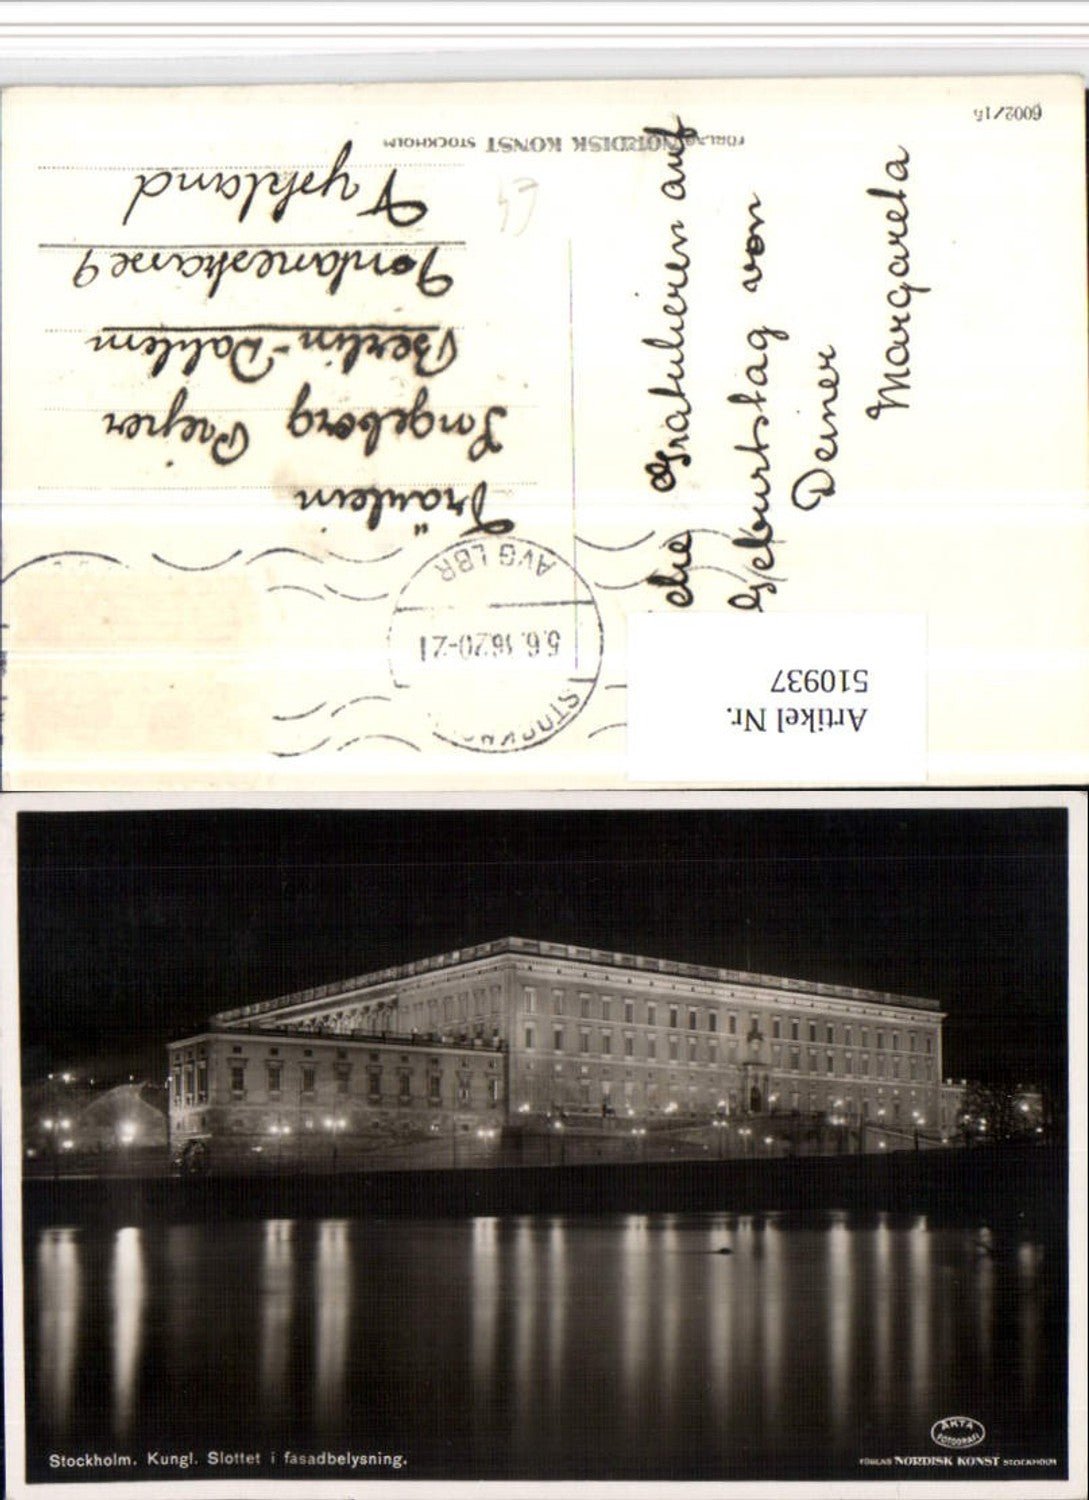 6002/15
FÖRLAG NORDISK KONST STOCKHOLM
die Gratulieren auf
Geburtstag von
Deiner
Margareta
Fräulein
Ingeborg
Berlin-Dahlem
Tyskland
STOCKHO
5.6. 20-21
AVG LBR
Artikel Nr.
510937
Stockholm. Kungl. Slottet i fasadbelysning.
ÄKTA
FOTOGRAFI
FÖRLAG NORDISK KONST STOCKHOLM